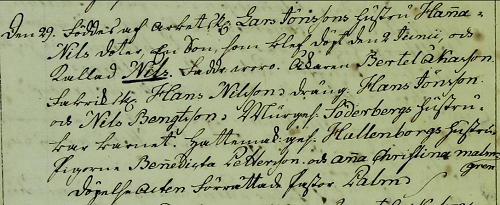 Den 29. Föddes af Arbet. Lars Jönssons Hustru Hanna
Nils doter, En Son, som blef döpt den 2 Junii, och
Kallad Nils. Fadd: voro. Åkaren Bertel Åkasson
Fabrik Hans Nilsson, dräng. Hans Jönsson.
och Nils Bengtson; Murges: Söderbergs Hustru
bar barnet. Hattemak: ges: Hallenborgs Hustru
Pigorne Benedicta Petterson. och Anna Christina Malm-
gren
Döpelse Acten förrättade Pastor Palm